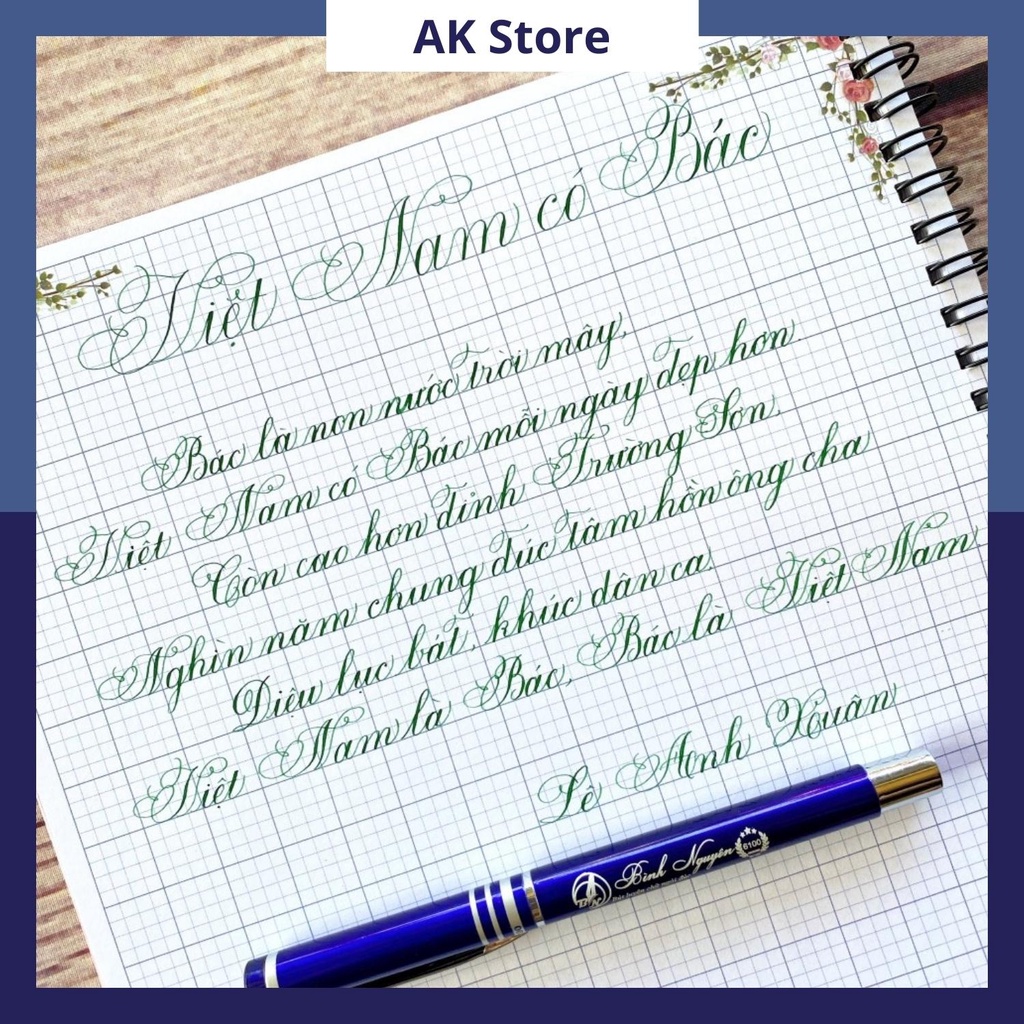 AK Store
Việt Nam có Bác
Bác là non nước trời mây,
Việt Nam có Bác mỗi ngày đẹp hơn.
Còn cao hơn đỉnh Trường Sơn,
Nghìn năm chung đúc tâm hồn ông cha
Điệu lục bát, khúc dân ca
Việt Nam là Bác, Bác là Việt Nam
Lê Anh Xuân
BN
Bình Nguyên
6100